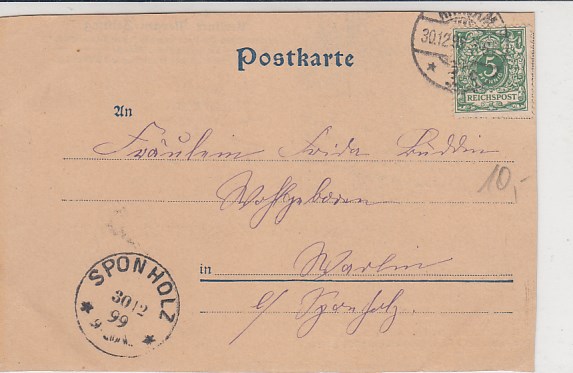 30.12.99
Postkarte
5
REICHSPOST
An
Fräulein Frida
Wohlgeboren
10,-
in Warlin
b/ Sponholz.
SPONHOLZ
30 12
99